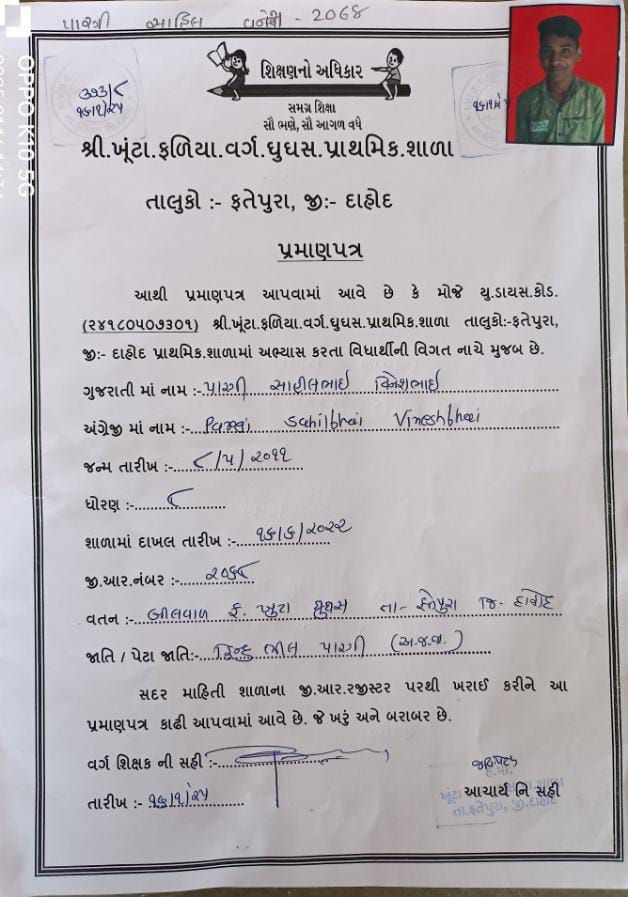 પારગી સાહિલ વનેશ - ૨૦૬૪
શિક્ષણનો અધિકાર
સમગ્ર શિક્ષા
સૌ ભણે, સૌ આગળ વધે
શ્રી.ખૂંટા.ફળિયા.વર્ગ.ઘુઘસ.પ્રાથમિક.શાળા
તાલુકો :- ફતેપુરા, જી:- દાહોદ
પ્રમાણપત્ર
આથી પ્રમાણપત્ર આપવામાં આવે છે કે મોજે યુ.ડાયસ.કોડ.
(૨૪૧૮૦૫૦૭૩૦૧) શ્રી.ખૂંટા.ફળિયા.વર્ગ.ઘુઘસ.પ્રાથમિક.શાળા તાલુકો:-ફતેપુરા,
જી:- દાહોદ પ્રાથમિક.શાળામાં અભ્યાસ કરતા વિધાર્થીની વિગત નાચે મુજબ છે.
ગુજરાતી માં નામ :- પારગી સાહીલભાઈ વિનેશભાઈ
અંગ્રેજી માં નામ :- Pargi Sahilbhai Vineshbhai
જન્મ તારીખ :- ૮/૫/૨૦૧૧
ધોરણ :- ૮
શાળામાં દાખલ તારીખ :- ૧૬/૬/૨૦૨૨
જી.આર.નંબર :- ૨૦૬૮
વતન :- બીલવાળ ફ. ખુટા ઘુઘસ તા- ફતેપુરા જિ- દાહોદ
જાતિ / પેટા જાતિ:- હિન્દુ ભીલ પારગી (અ.જ.જા.)
સદર માહિતી શાળાના જી.આર.રજીસ્ટર પરથી ખરાઈ કરીને આ
પ્રમાણપત્ર કાઢી આપવામાં આવે છે. જે ખરું અને બરાબર છે.
વર્ગ શિક્ષક ની સહી :-
તારીખ :- ૧૬/૧/૨૫
આચાર્ય નિ સહી
તા.ફતેપુરા, જી.દાહોદ
OPPO K10 5G